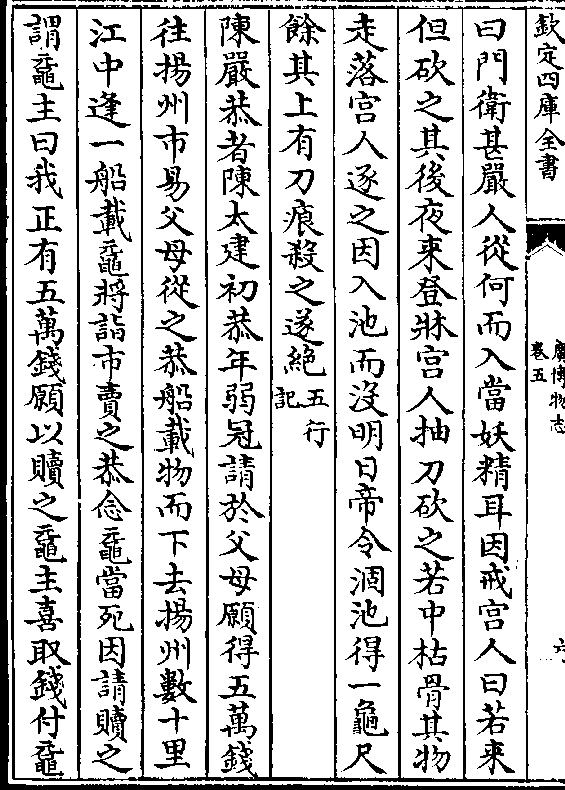 欽定四庫全書
廣博物志
卷五
六
曰門衛甚嚴人從何而入當妖精耳因戒宫人曰若来
但砍之其後夜来登牀宫人抽刀砍之若中枯骨其物
走落宫人逐之因入池而沒明日帝令涸池得一龜尺
餘其上有刀痕殺之遂絶五行記
陳嚴恭者陳太建初恭年弱冠請於父母願得五萬錢
往揚州市易父母從之恭船載物而下去揚州數十里
江中逢一船載黿將詣市賣之恭念黿當死因請贖之
謂黿主曰我正有五萬錢願以贖之黿主喜取錢付黿